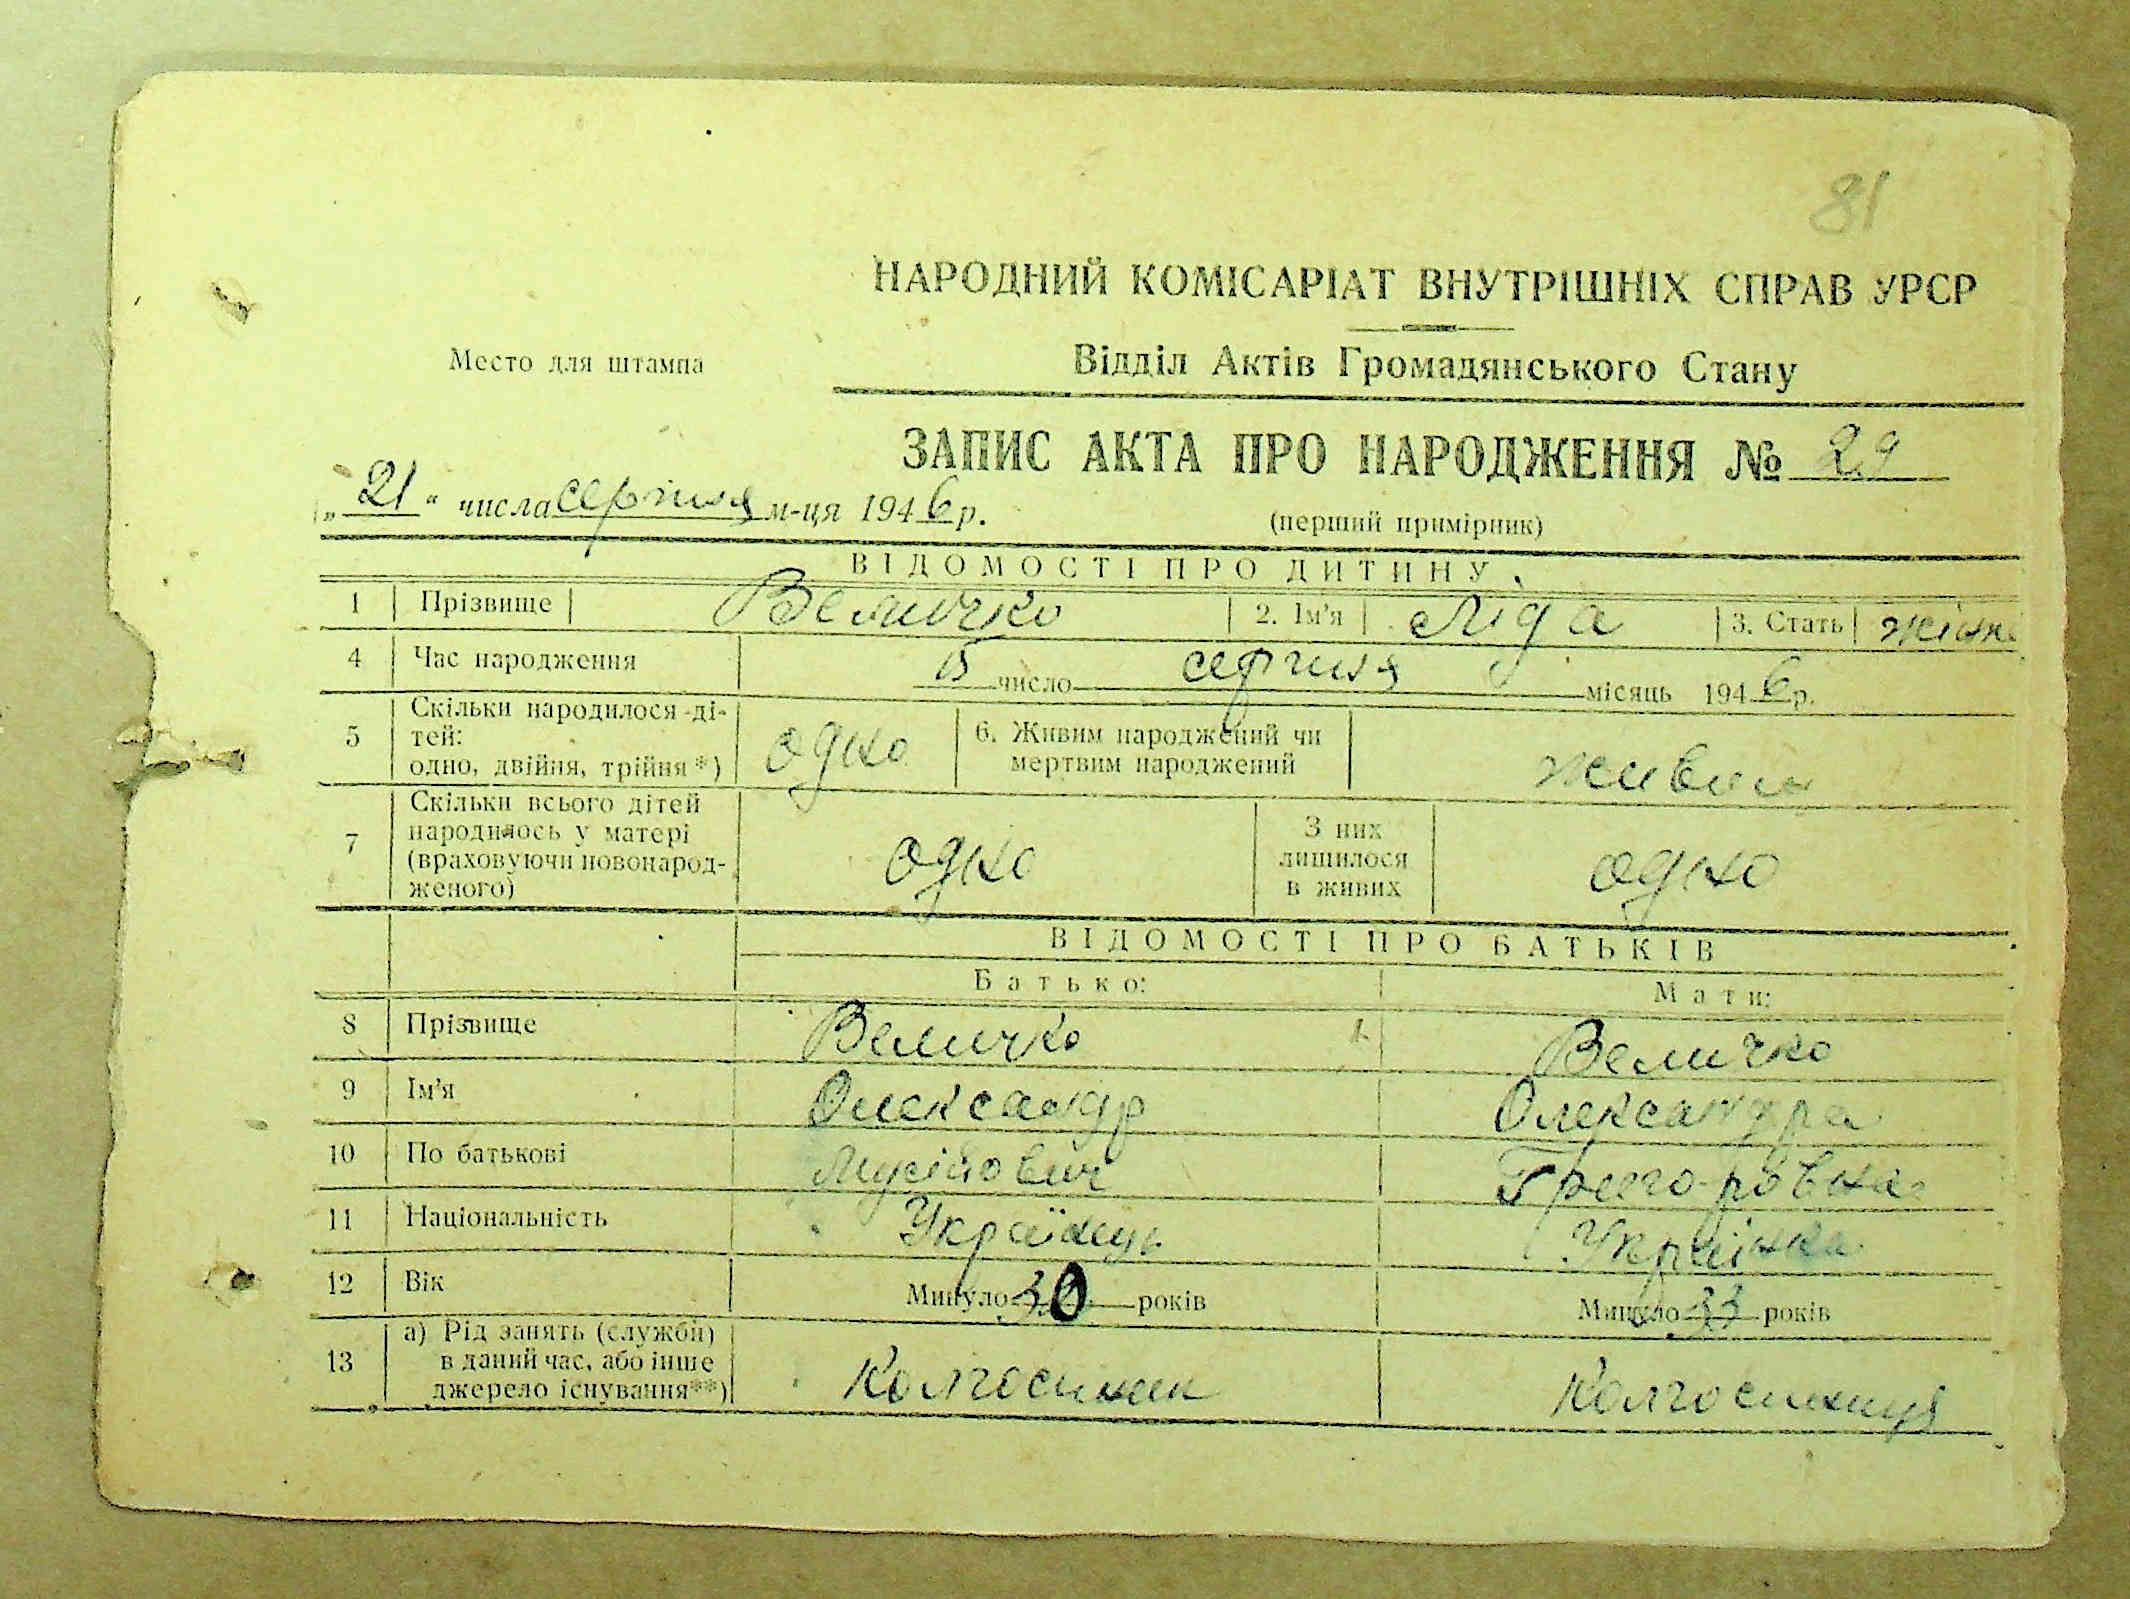 81
НАРОДНИЙ КОМІСАРІАТ ВНУТРІШНІХ СПРАВ УРСР
Место для штампа
Відділ Актів Громадянського Стану
ЗАПИС АКТА ПРО НАРОДЖЕННЯ № 29
„21“ числа серпня м-ця 1946 р.
(перший примірник)
ВІДОМОСТІ ПРО ДИТИНУ
1 Прізвище Величко 2. Ім'я Ліда 3. Стать жіноч
4 Час народження 15 число серпня місяць 1946 р.
5 Скільки народилося ді-
тей:
одно, двійня, трійня*) одно 6. Живим народжений чи
мертвим народжений живим
7 Скільки всього дітей
народилось у матері
(враховуючи новонарод-
женого) одно З них
лишилося
в живих одно
ВІДОМОСТІ ПРО БАТЬКІВ
Батько: Мати:
8 Прізвище Величко Величко
9 Ім'я Олександр Олександра
10 По батькові Мусійович Григоровна
11 Національність Українець Українка
12 Вік Минуло 30 років Минуло 33 років
13 а) Рід занять (служби)
в даний час, або інше
джерело існування**) Колгоспник Колгоспниця